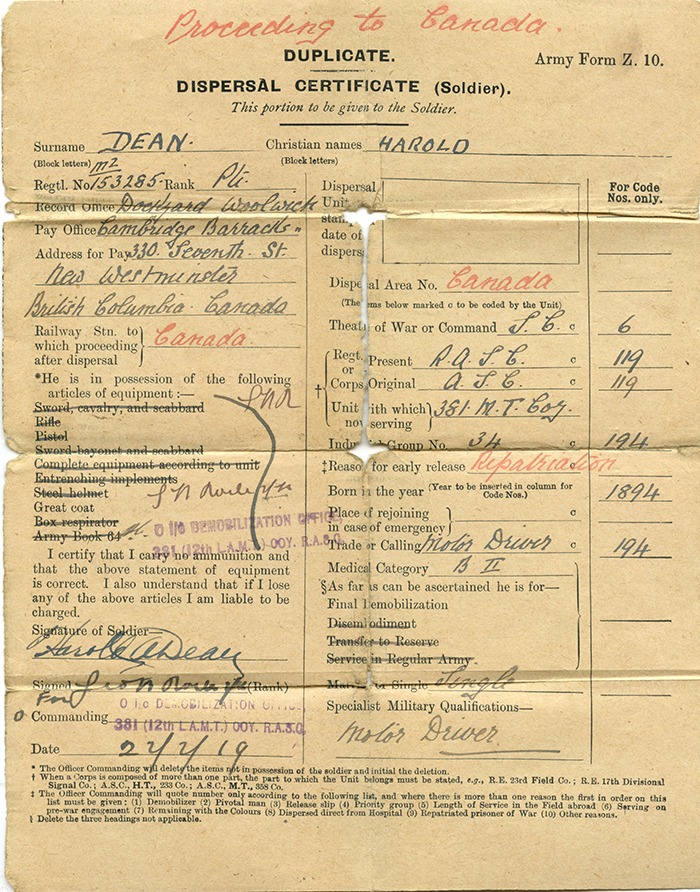 Proceeding to Canada.
DUPLICATE.
Army Form Z. 10.
DISPERSAL CERTIFICATE (Soldier).
This portion to be given to the Soldier.
Surname DEAN. Christian names HAROLD
(Block letters) (Block letters)
Regtl. No. M2 153285 Rank Pte.
Record Office Dockyard Woolwich
Pay Office Cambridge Barracks "
Address for Pay 330. Seventh. St.
New Westminster
British Columbia. Canada
Railway Stn. to which proceeding after dispersal } Canada.
*He is in possession of the following
articles of equipment :—
Sword, cavalry, and scabbard
Rifle
Pistol
Sword-bayonet and scabbard
Complete equipment according to unit
Entrenching implements
Steel helmet
Great coat
Box respirator
Army Book 64
O i/c DEMOBILIZATION OFFICE,
381 (12th L.A.M.T.) COY. R.A.S.C.
I certify that I carry no ammunition and
that the above statement of equipment
is correct. I also understand that if I lose
any of the above articles I am liable to be
charged.
Signature of Soldier
Harold Dean
Signed (Rank)
For
O i/c DEMOBILIZATION OFFICE,
O Commanding 381 (12th L.A.M.T.) COY. R.A.S.C.
Date 22/2/19
Dispersal
Unit
stam
date of
dispers
For Code
Nos. only.
Dispersal Area No. Canada
(The items below marked c to be coded by the Unit)
Theatre of War or Command S. C. c 6
Regt. or Corps { Present R. A. S. C. c 119
Original A. S. C. c 119
† Unit with which now serving } 381 M. T. Coy.
Industrial Group No. 34 c 194
‡Reason for early release Repatriation c
Born in the year (Year to be inserted in column for Code Nos.) 1894
Place of rejoining in case of emergency } c
Trade or Calling Motor Driver c 194
Medical Category B II
§As far as can be ascertained he is for—
Final Demobilization
Disembodiment
Transfer to Reserve
Service in Regular Army
Married or Single Single
Specialist Military Qualifications—
Motor Driver
* The Officer Commanding will delete the items not in possession of the soldier and initial the deletion.
† When a Corps is composed of more than one part, the part to which the Unit belongs must be stated, e.g., R.E. 23rd Field Co.; R.E. 17th Divisional
Signal Co.; A.S.C., H.T., 233 Co.; A.S.C., M.T., 358 Co.
‡ The Officer Commanding will quote number only according to the following list, and where there is more than one reason the first in order on this
list must be given: (1) Demobilizer (2) Pivotal man (3) Release slip (4) Priority group (5) Length of Service in the Field abroad (6) Serving on
pre-war engagement (7) Remaining with the Colours (8) Dispersed direct from Hospital (9) Repatriated prisoner of War (10) Other reasons.
§ Delete the three headings not applicable.